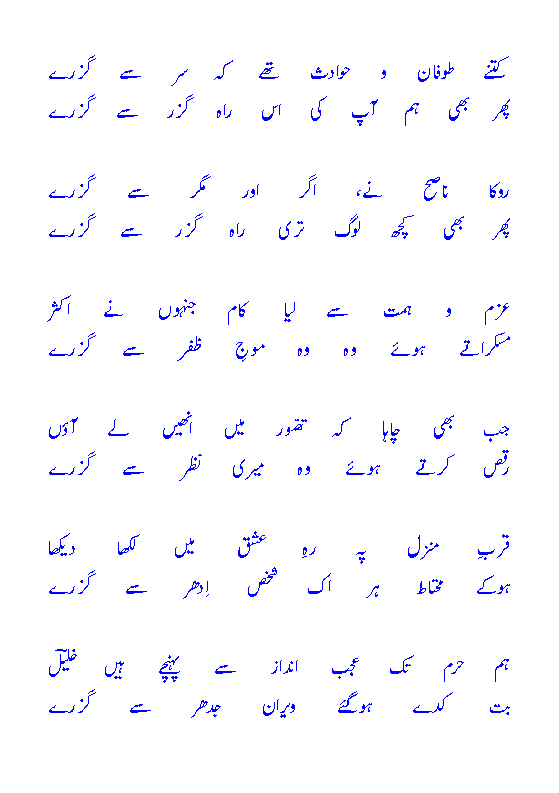 کتنے طوفان و حوادث تھے کہ سر سے گزرے
پھر بھی ہم آپ کی اس راہ گزر سے گزرے
روکا ناصح نے، اگر اور مگر سے گزرے
پھر بھی کچھ لوگ تری راہ گزر سے گزرے
عزم و ہمت سے لیا کام جنہوں نے اکثر
مسکراتے ہوئے وہ وہ موجِ ظفر سے گزرے
جب بھی چاہا کہ تصّور میں انھیں لے آؤں
رقص کرتے ہوئے وہ میری نظر سے گزرے
قربِ منزل پہ رہِ عشق میں لکھا دیکھا
ہوکے محتاط ہر اک شخص اِدھر سے گزرے
ہم حرم تک عجب انداز سے پہنچے ہیں خلیلؔ
بت کدے ہوگئے ویران جدھر سے گزرے